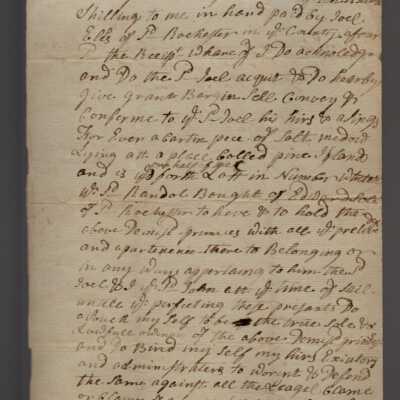 Shilling to me in hand paid by Joel
Ells of sd Rochester in ye County afour
sd the Receipt whare of I Do acknoledge
and Do the sd Joel acquit & Do hearby
give grant Bargin Sell Convey &
Conferme to ye sd Joel his hirs & asings
For Ever a Cartin pece of Salt medow
Lying att a place Called pine Island
and is ye forth Lott in Number which
ye sd Randol Bought of Edward
of sd Rochester to have & to hold the
above Demised primces with all ye
and apartenences there to Belonging or
in any ways appertaing to him the sd
Joel & I ye sd John att ye time of
untill ye perfecting these presants Do
avouch my Self to be the true Sole &
Lawfull owner of the above Demised
and Do Bind my Self my hirs Exicutors
and adminestrators to warent & Defend
the Same against all the Leagel Clame